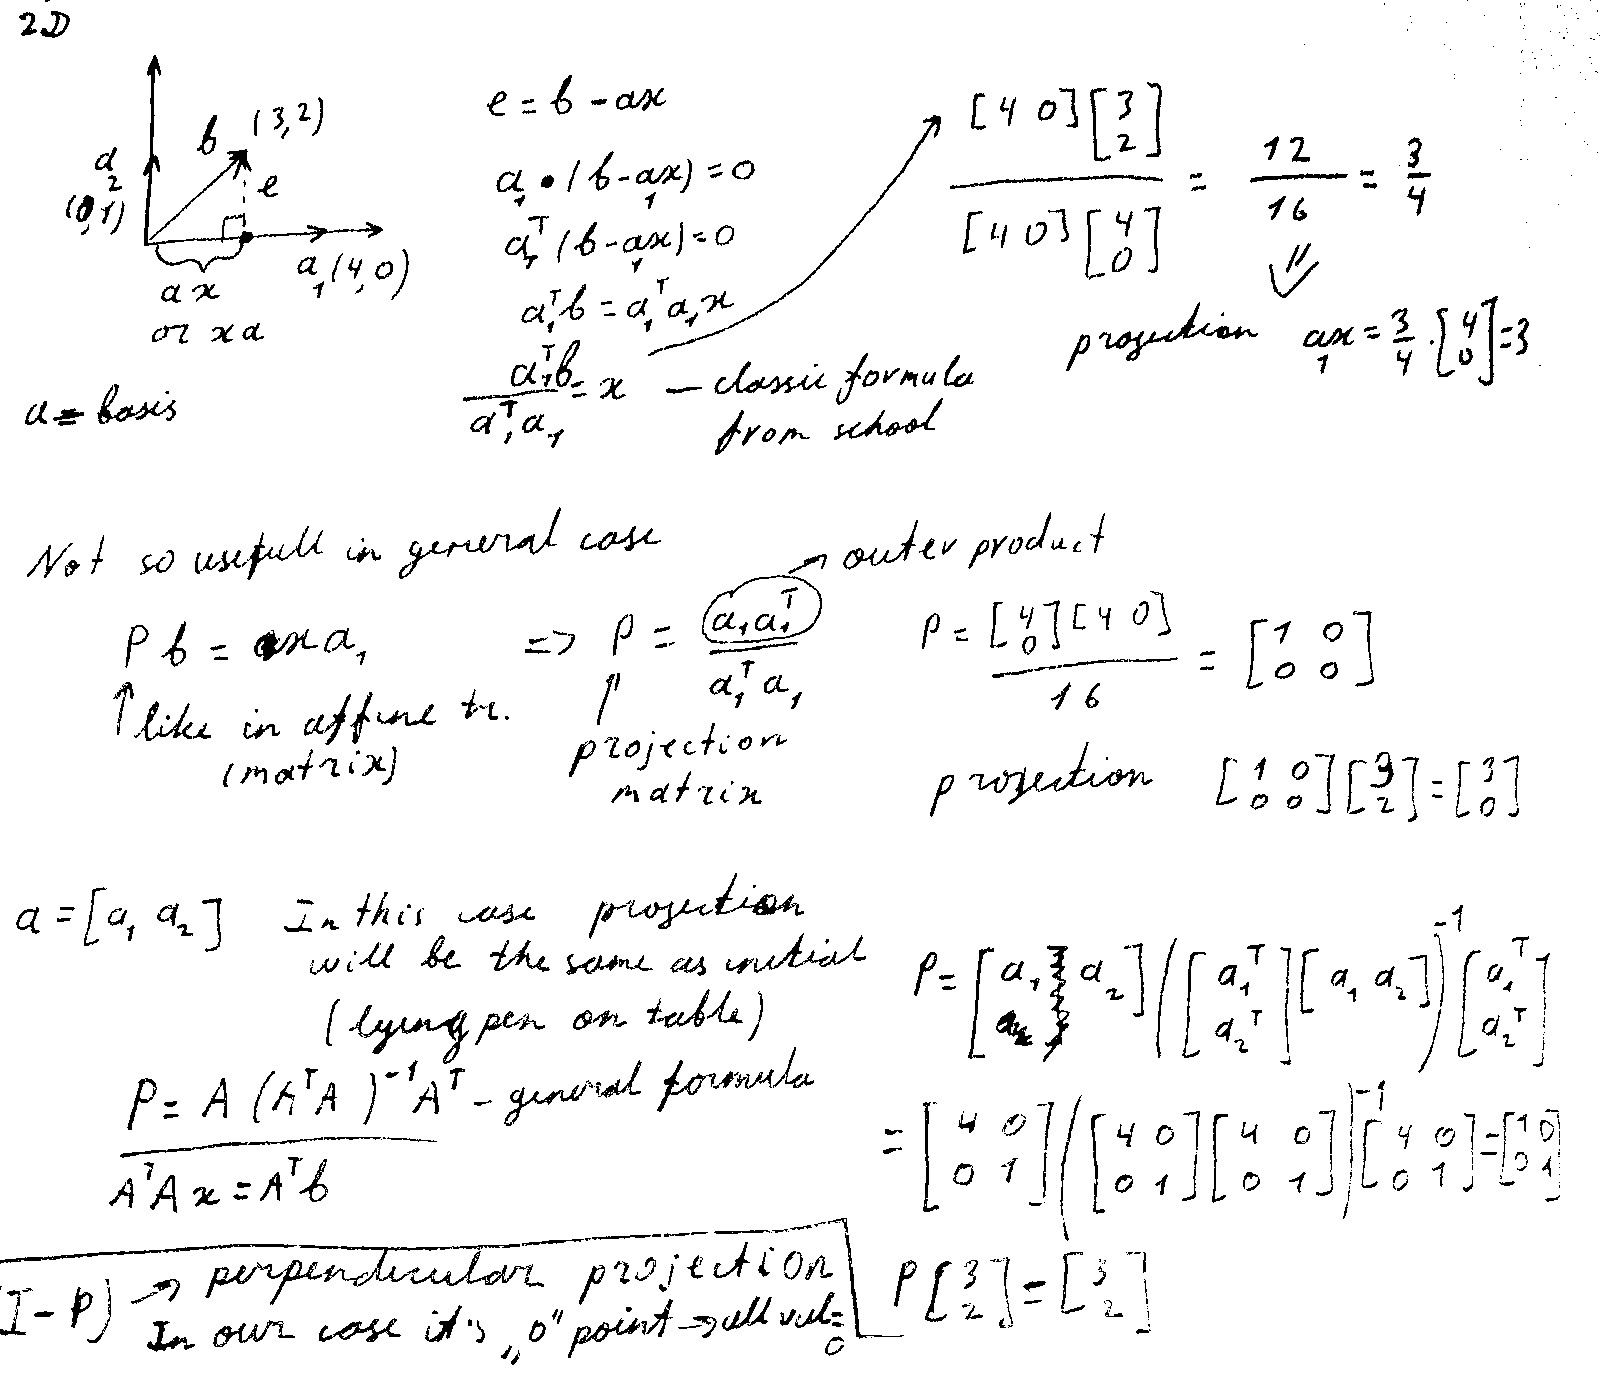 2D
b (3,2)
a₂
(0,1)
e
a₁(4,0)
ax
or xa
a = basis
e = b - ax
a₁ • (b - a₁x) = 0
a₁ᵀ(b - a₁x) = 0
a₁ᵀb = a₁ᵀa₁x
a₁ᵀb / a₁ᵀa₁ = x — classic formula
from school
[4 0][3 2] / [4 0][4 0] = 12/16 = 3/4
projection a₁x = 3/4 · [4 0] = 3
Not so usefull in general case
Pb = xa₁ => P = a₁a₁ᵀ / a₁ᵀa₁ → outer product
↑ like in affine tr.
(matrix)
↑
projection
matrix
P = [4 0][4 0] / 16 = [1 0; 0 0]
projection [1 0; 0 0][3 2] = [3 0]
a = [a₁ a₂] In this case projection
will be the same as initial
(lying pen on table)
P = A(AᵀA)⁻¹Aᵀ - general formula
AᵀAx = Aᵀb
P = [a₁ a₂]([a₁ᵀ; a₂ᵀ][a₁ a₂])⁻¹[a₁ᵀ; a₂ᵀ]
= [4 0; 0 1]([4 0; 0 1][4 0; 0 1])⁻¹[4 0; 0 1] = [1 0; 0 1]
P[3 2] = [3 2]
(I - P) → perpendicular projection
In our case it's „0" point → all val = 0